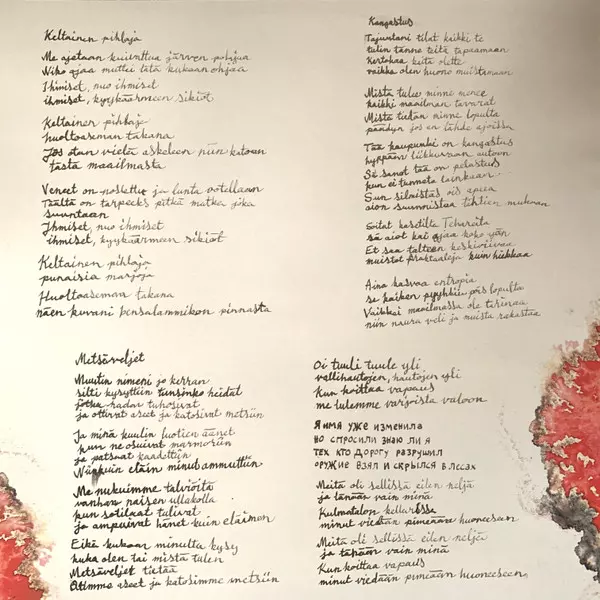 Keltainen pihlaja
Me ajetaan kuunttua järven pohjaa
Niko ajaa muttei tätä kukaan ohjaa
Ihmiset, nuo ihmiset
ihmiset, kyykäärmeen sikiöt
Keltainen pihlaja
huoltoaseman takana
Jos otan vielä askeleen niin katoan
tästä maailmasta
Veneet on nostettu ja lunta ootellaan
Täältä on tarpeeks pitkä matka joka
suuntaan
Ihmiset, nuo ihmiset
ihmiset, kyykäärmeen sikiöt
Keltainen pihlaja
punaisia marjoja
Huoltoaseman takana
näen kuvani bensalammikon pinnasta
Kangastus
Tajuntani tilat kaikki te
tulin tänne teitä tapaamaan
Kertokaa keitä olette
vaikka olen huono muistamaan
Mistä tulee minne menee
kaikki maailman tavarat
Mistä tiedän minne lopulta
päädyn jos en lähde ajoissa
Tää kaupunki on kangastus
hyppään liikkuvaan autoon
Sä sanot tää on pelastus
kun ei tunneta lainkaan
Sun silmistäs ois apua
aion suunnistaa tähtien mukaan
Soitat kasetilta Tehareita
sä aiot kai ajaa koko yön
Et saa talteen keskiviivaa
muistot puhtaaloja kuin hiekkaa
Aina kasvaa entropia
se kaiken pyyhkii pois lopulta
Vaikkei maailmassa ole tarinaa
niin naura veli ja muista rakastaa
Metsäveljet
Muutin nimeni jo kerran
silti kysyttiin tunsinko heidät
jotka radan tuhosivat
ja ottivat aseet ja katosivat metsiin
Ja minä kuulin luotien äänet
kun ne osuivat marmoriin
ja patsaat kaadettiin
Niinkuin eläin minut ammuttiin
Me nukuimme talviöitä
vanhan naisen ullakolla
kun sotilaat tulivat
ja ampuivat hänet kuin eläimen
Eikä kukaan minulta kysy
kuka olen tai mistä tulen
Metsäveljet tietää
Otimme aseet ja katosimme metsiin
Oi tuuli tuule yli
vallihautojen, hautojen yli
Kun koittaa vapaus
me tulemme varjoista valoon
Я имя уже изменила
но спросили знаю ли я
тех кто дорогу разрушил
оружие взял и скрылся в лесах
Meitä oli sellissä eilen neljä
ja tänään vain minä
Kulmatalon kellarissa
minut viedään pimeään huoneeseen
Meitä oli sellissä eilen neljä
ja tänään vain minä
Kun koittaa vapaus
minut viedään pimeään huoneeseen